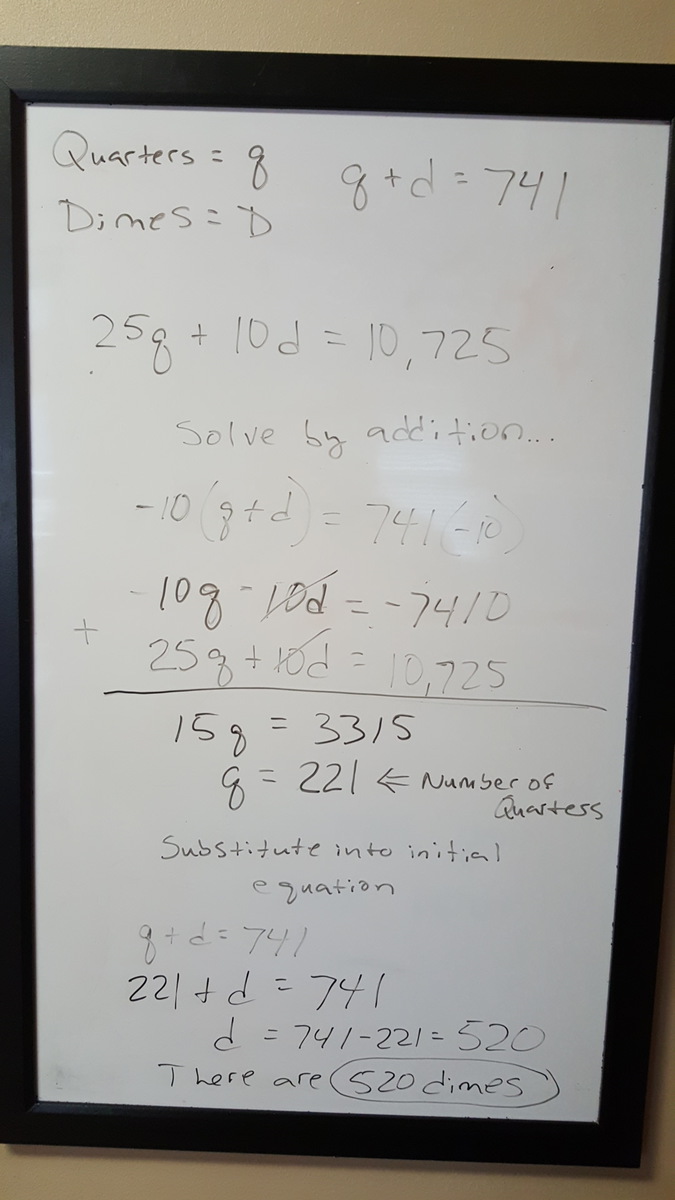 Quarters = q q + d = 741
Dimes = D
25q + 10d = 10,725
Solve by addition...
-10(q+d) = 741(-10)
-10q - 10d = -7410
+ 25q + 10d = 10,725
15q = 3315
q = 221 ⇐ Number of
Quarters
Substitute into initial
equation
q + d = 741
221 + d = 741
d = 741-221 = 520
There are 520 dimes